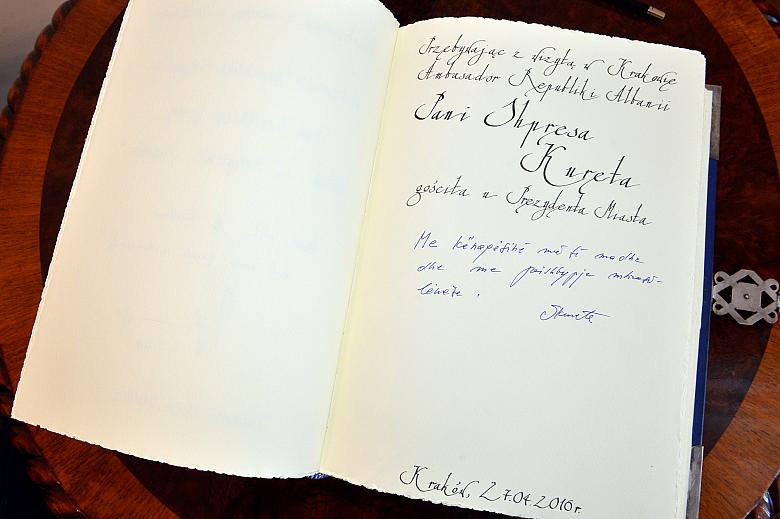 Przebywając z wizytą w Krakowie
Ambasador Republiki Albanii
Pani Shpresa
Kureta
gościła u Prezydenta Miasta
Me kënaqësinë më të madhe
dhe me
Kraków, 27.04.2016 r.